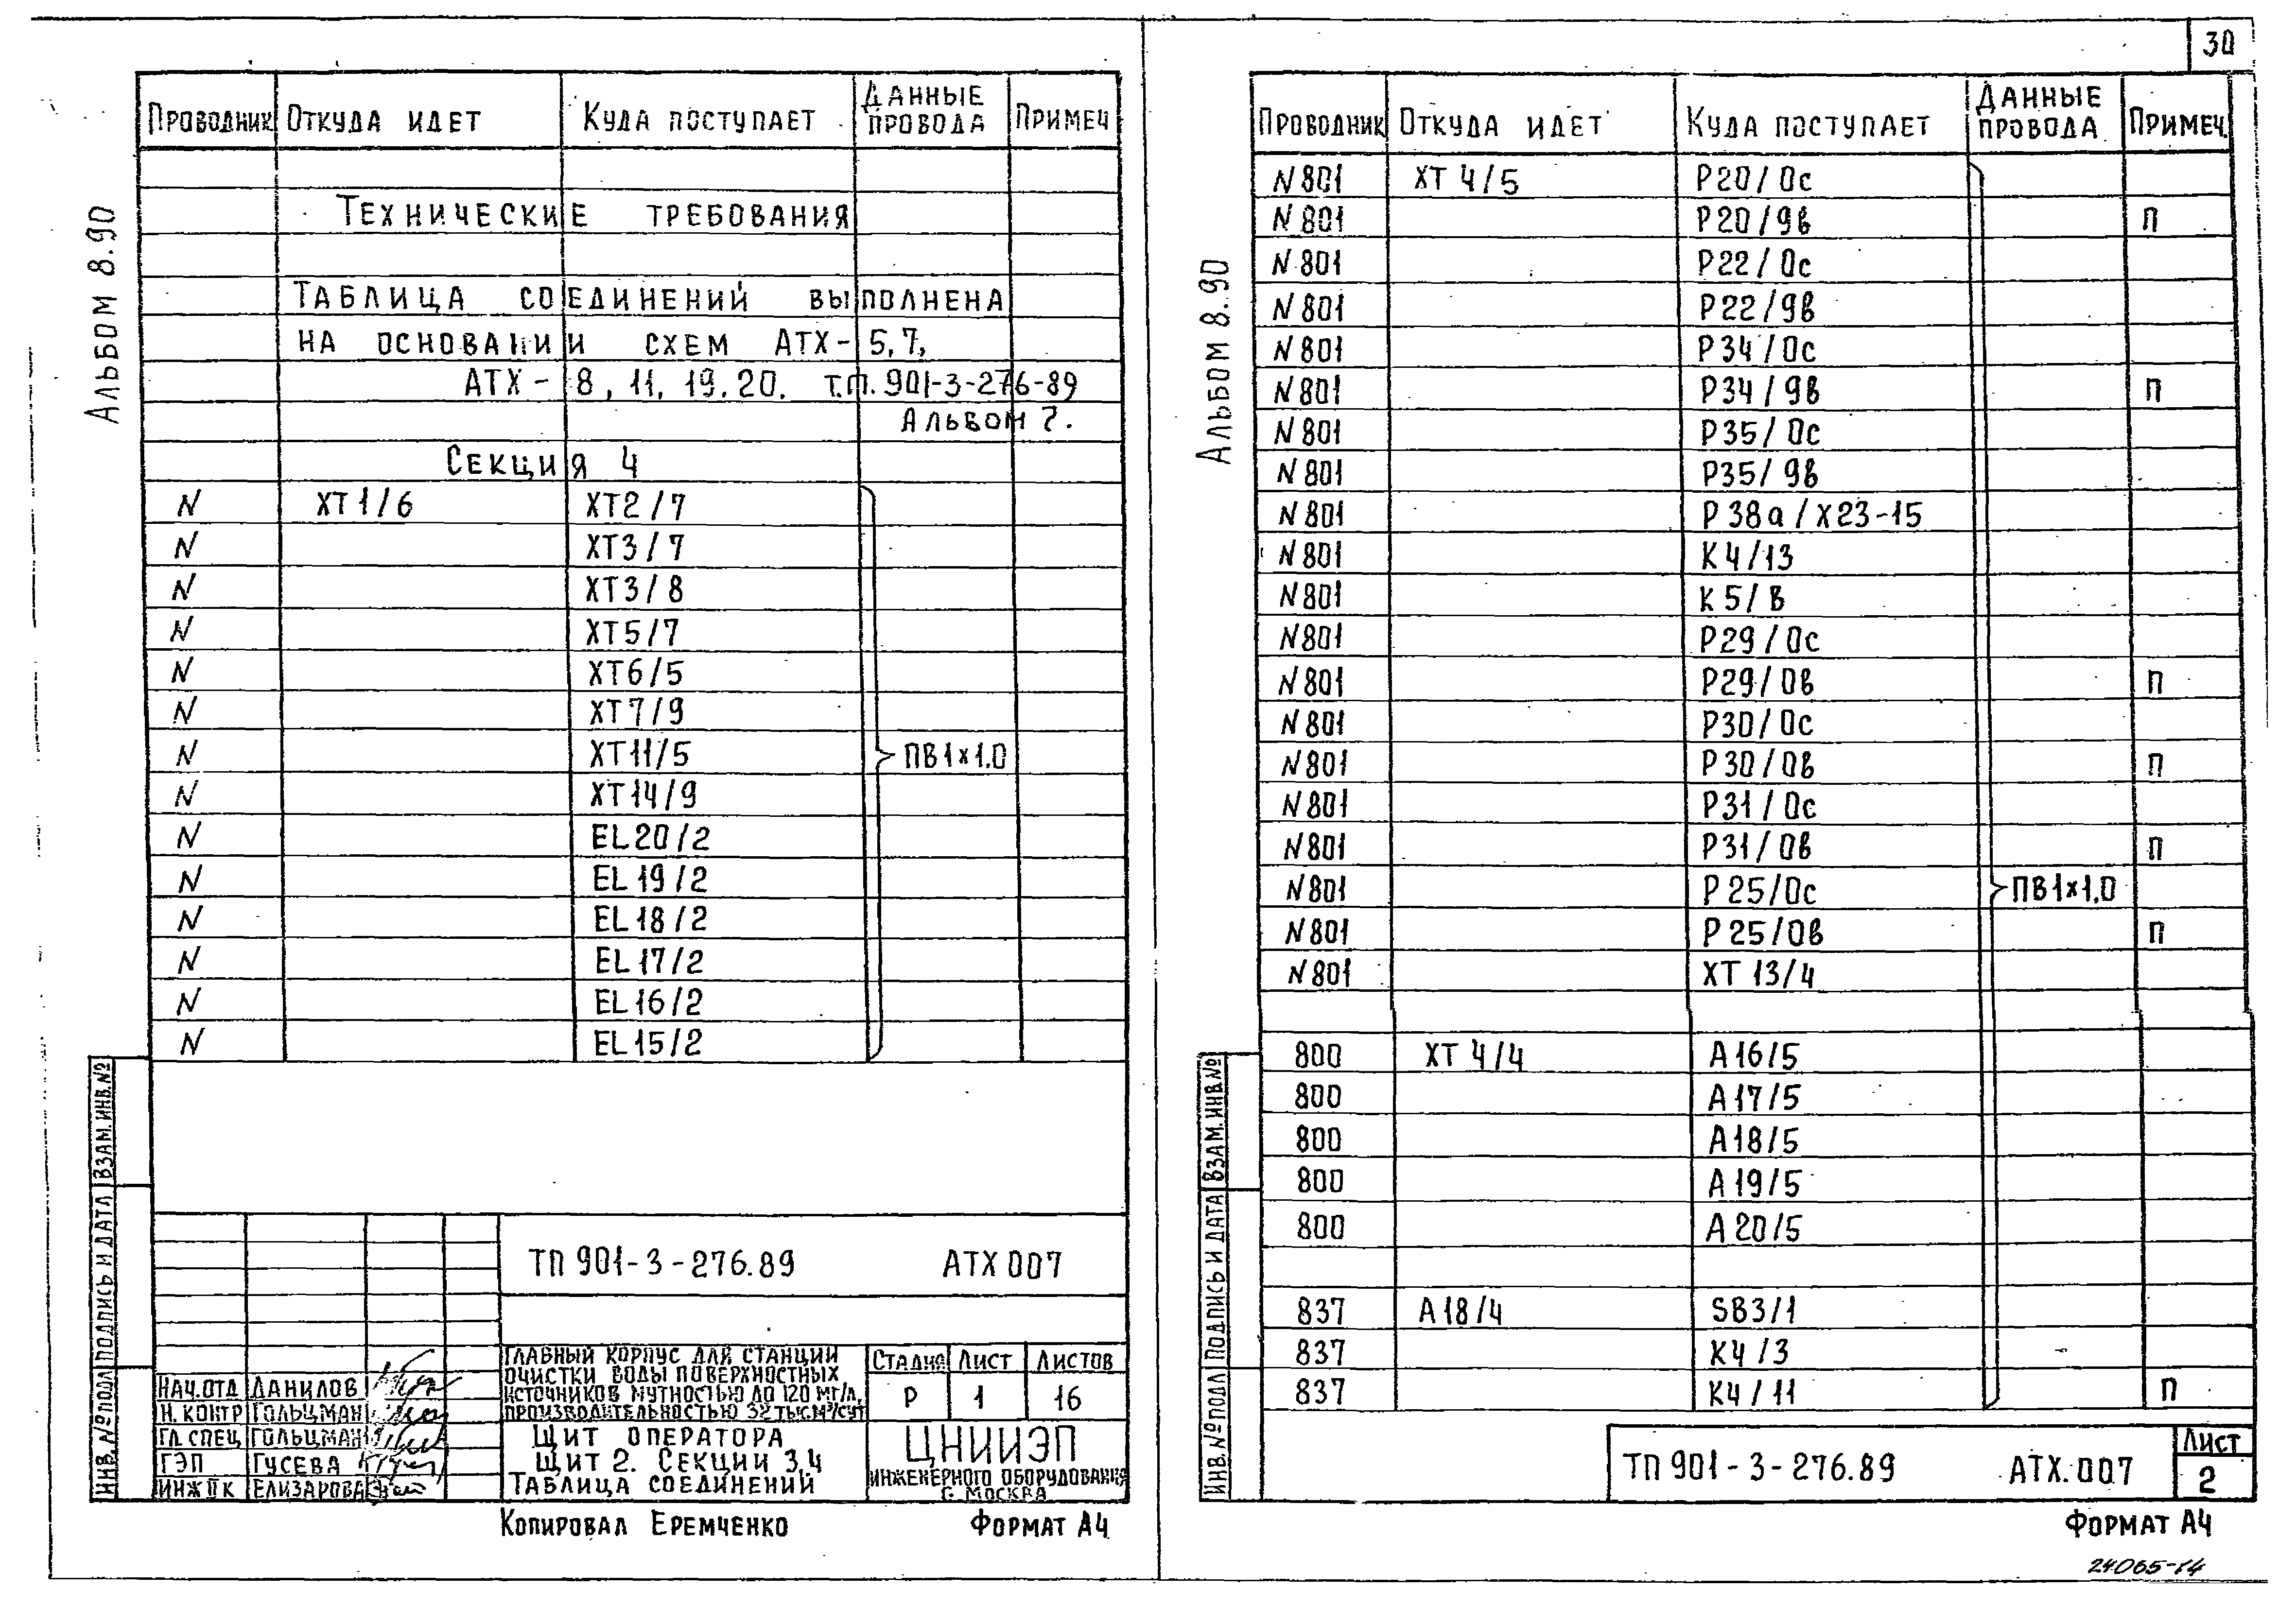 30
Альбом 8.90
Проводник Откуда идет Куда поступает Данные провода Примеч
Технические требования
Таблица соединений выполнена
на основании схем АТХ-5,7,
АТХ-8, 11, 19. 20. т.п. 901-3-276-89
Альбом 7.
Секция 4
N ХТ1/6 ХТ2/7
N ХТ3/7
N ХТ3/8
N ХТ5/7
N ХТ6/5
N ХТ7/9
N ХТ11/5 ПВ1х1.0
N ХТ14/9
N EL20/2
N EL19/2
N EL18/2
N EL17/2
N EL16/2
N EL15/2
Взам.инв.№
Подпись и дата
Инв.№ подл
ТП 901-3-276.89 АТХ 007
Главный корпус для станции
очистки воды поверхностных
источников мутностью до 120 мг/л,
производительностью 32 тыс.м³/сут
Стадия Лист Листов
Р 1 16
Нач.отд Данилов
Н. контр Гольцман
Гл. спец Гольцман
ГЭП Гусева
Инж II к Елизарова
Щит оператора
Щит 2. Секции 3,4
Таблица соединений
ЦНИИЭП
инженерного оборудования
г. Москва
Копировал Еремченко Формат А4
Альбом 8.90
Проводник Откуда идет Куда поступает Данные провода Примеч.
N801 ХТ4/5 Р20/0с
N801 Р20/9в П
N801 Р22/0с
N801 Р22/9в
N801 Р34/0с
N801 Р34/9в П
N801 Р35/0с
N801 Р35/9в
N801 Р38а/Х23-15
N801 К4/13
N801 К5/В
N801 Р29/0с
N801 Р29/0в П
N801 Р30/0с
N801 Р30/0в П
N801 Р31/0с
N801 Р31/0в П
N801 Р25/0с ПВ1х1,0
N801 Р25/0в П
N801 ХТ13/4
800 ХТ4/4 А16/5
800 А17/5
800 А18/5
800 А19/5
800 А20/5
837 А18/4 SB3/1
837 К4/3
837 К4/11 П
Взам.инв.№
Подпись и дата
Инв.№ подл
ТП 901-3-276.89 АТХ.007
Лист
2
Формат А4
24065-14